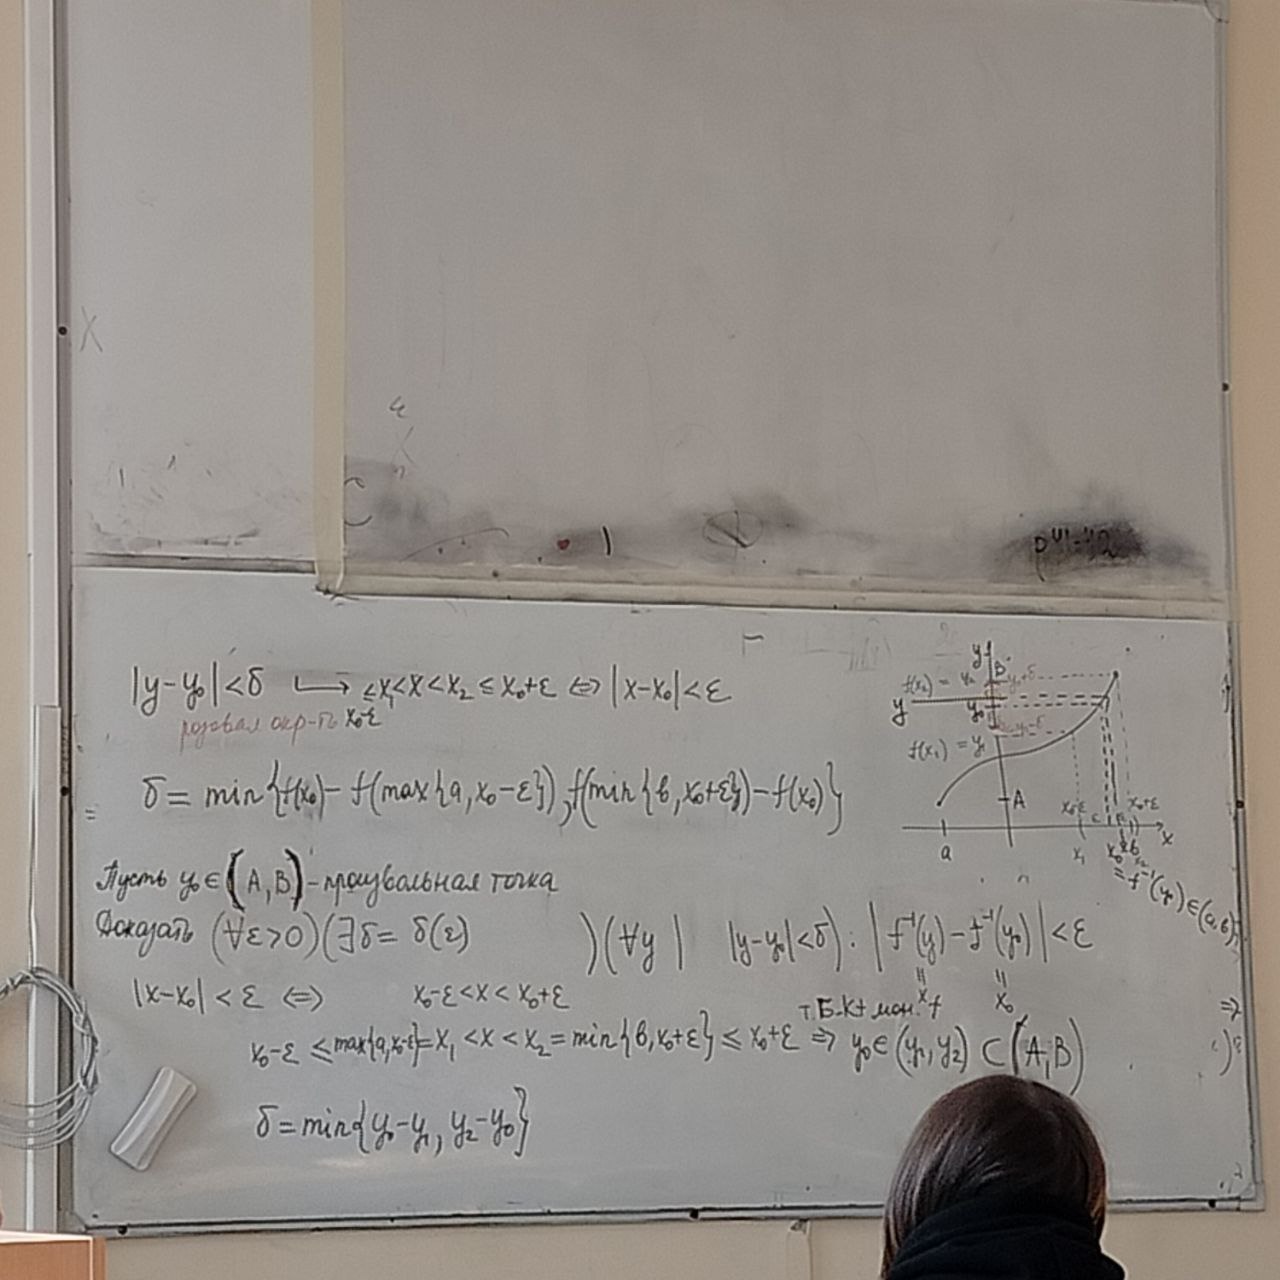 |y-y₀|<δ ↦ ≤x₁<x<x₂≤x₀+ε ⇔ |x-x₀|<ε
розовая окр-ть x₀-ε
δ = min{f(x₀)-f(max{a,x₀-ε}), f(min{b,x₀+ε})-f(x₀)}
Пусть y₀∈(A,B)-произвольная точка
Доказать (∀ε>0)(∃δ=δ(ε) )(∀y | |y-y₀|<δ): |f⁻¹(y)-f⁻¹(y₀)|<ε
= x = x₀
|x-x₀|<ε ⇔ x₀-ε<x<x₀+ε
т.Б-К+мон. f
x₀-ε ≤ max{a,x₀-ε}=x₁<x<x₂=min{b,x₀+ε}≤x₀+ε ⇒ y₀∈(y₁,y₂)⊂(A,B)
δ=min{y₀-y₁, y₂-y₀}
y
B
f(x₂) = y₂ y₀+δ
y y₀
y₀-δ
f(x₁) = y₁
A
x₀-ε x₀+ε
a x₁ x₀ x₂ b x
=f⁻¹(y₀)∈(a,b)